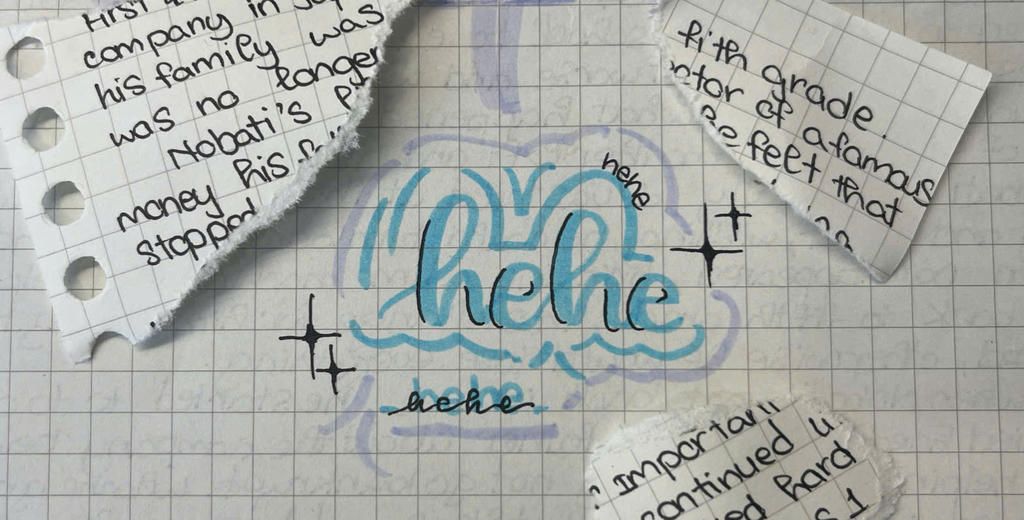 company in
his family was
was no longer
Nobati's
money his
stopped
fith grade.
of a famous
feel that
hehe
hehe
hehe
Important
continued
hard
1